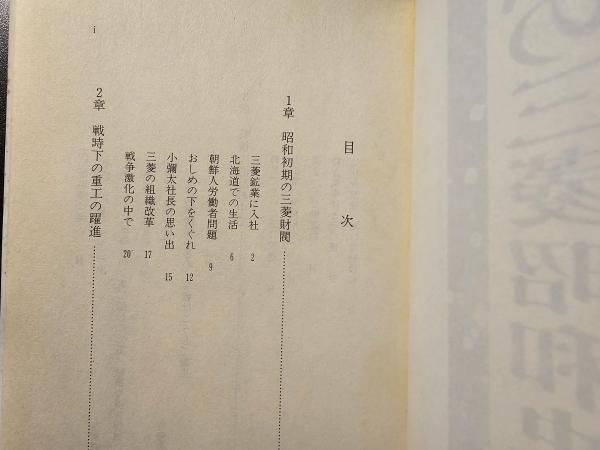 目次
1章 昭和初期の三菱財閥
三菱鉱業に入社 2
北海道での生活 6
朝鮮人労働者問題 9
おしめの下をくぐれ 12
小彌太社長の思い出 15
三菱の組織改革 17
戦争激化の中で 20
2章 戦時下の重工の躍進
i